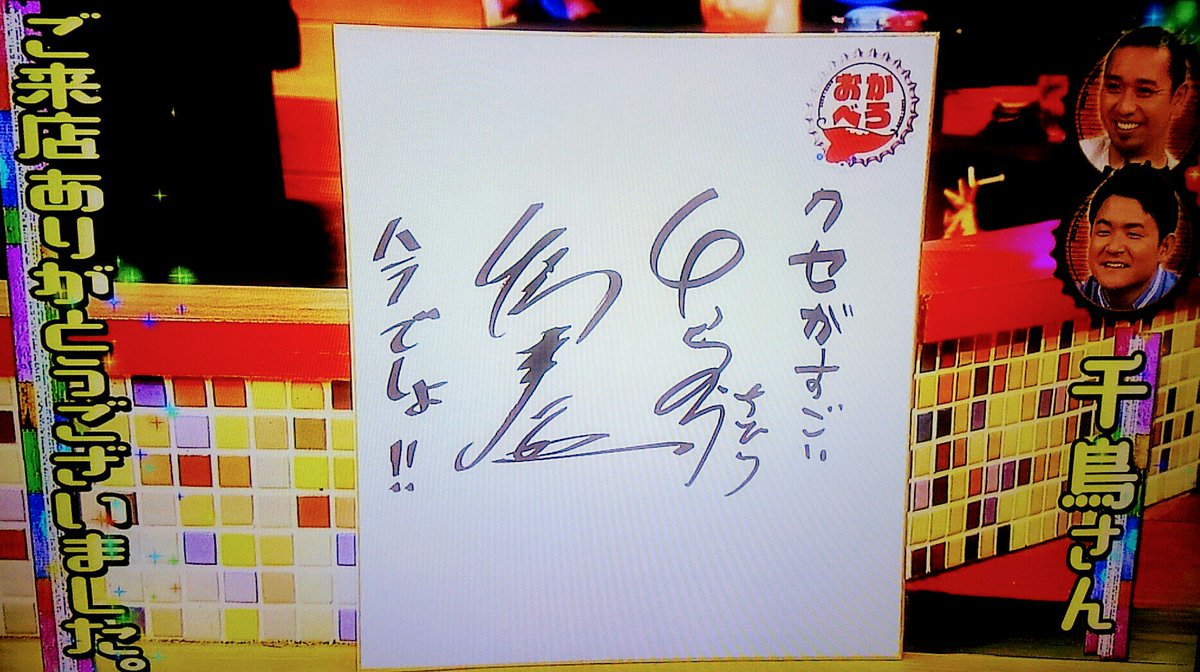 おか
べろ
クセがすごい
今でしょ!!
千鳥さん
ご来店ありがとうございました。